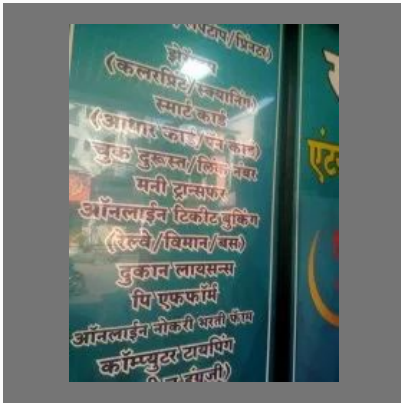 लॅपटॉप/प्रिंटर)
झेरॉक्स
(कलरप्रिंट/स्क्यानिंग)
स्मार्ट कार्ड
(आधार कार्ड/पॅन कार्ड)
चुक दुरूस्त/लिंक नंबर
मनी ट्रान्सफर
ऑनलाईन टिकीट बुकिंग
(रेल्वे/विमान/बस)
दुकान लायसन्स
पि एफफॉर्म
ऑनलाईन नोकरी भरती फॉम
कॉम्प्युटर टायपिंग
इंग्रजी)